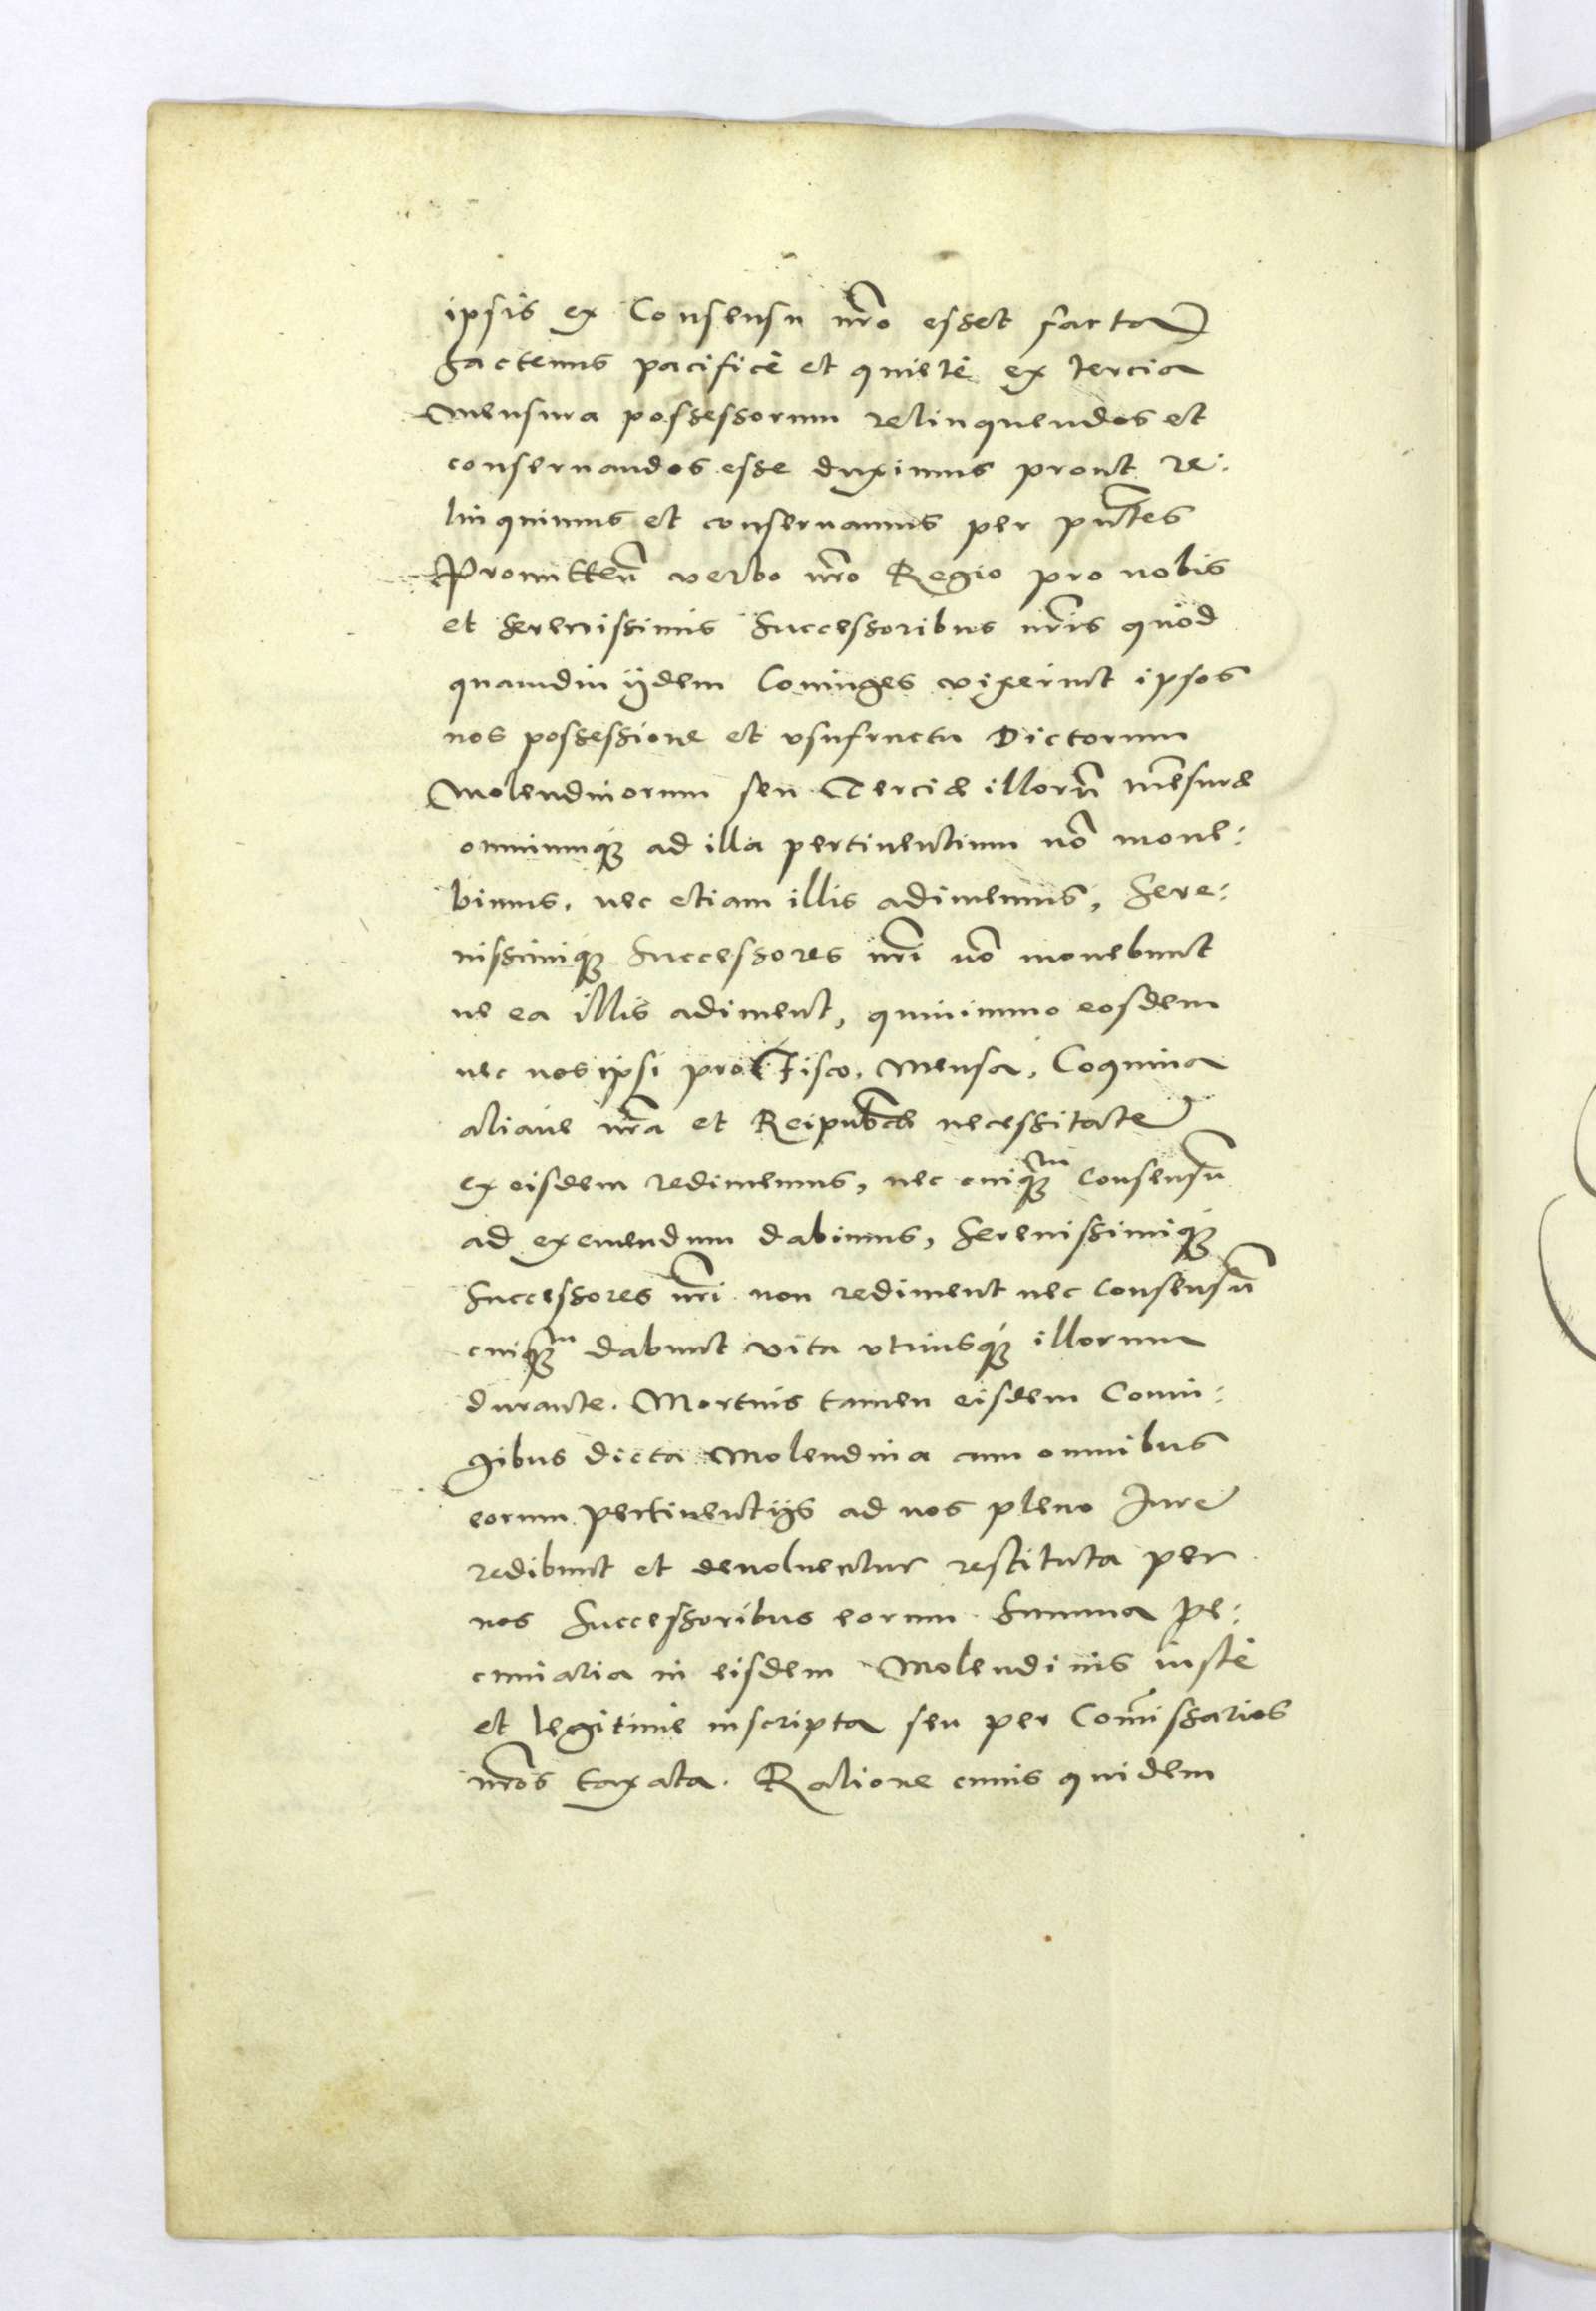 ipsis ex Consensu nr̃o esset facta)
hactenus pacificè et quietè ex tercia
mensura possessorum relinquendos et
conseruandos esse duximus prout re:
linquimus et conseruamus per pn̄tes
Promitteñ verbo nr̃o Regio pro nobis
et serenissimis Successoribus nr̃is quòd
quamdiu ijdem Coniuges vixerint ipsos
nos possessione et vsufructu Dictorum
Molendinorum seu Terciæ illorũ mẽsuræ
omniumq́ꝫ ad illa pertinentium nõ moue:
bimus, nec etiam illis adimemus, Sere:
nissimiqꝫ Successores nr̃i nõ mouebunt
ne ea illis adiment, quinimmo eosdem
nec nos ipsi pro Fisco, Mensa, Coquina
aliaúe nr̃a et Reipub̃cæ necessitate
ex eisdem redimemus, nec cuiqꝫᵐ consensũ
ad exemendum dabimus, Serenissimiq́ꝫ
Successores nr̃i non rediment nec consensũ
cuiqꝫᵐ dabunt vita vtriusq́ꝫ illorum
durante. Mortuis tamen eisdem Coniu:
gibus dicta Molendina cum omnibus
eorum pertinentijs ad nos pleno Jure
redibunt et deuoluentur restituta per
nos Successoribus eorum Summa pe:
cuniaria in eisdem Molendinis iustè
et legitimè inscripta seu per Com̃issarios
nr̃os taxata. Ratione cuius quidem